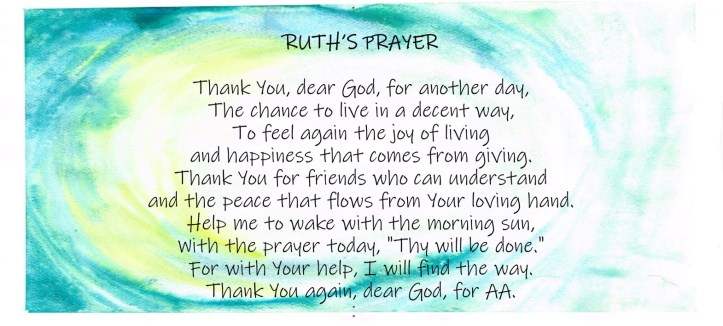 RUTH'S PRAYER
Thank You, dear God, for another day,
The chance to live in a decent way,
To feel again the joy of living
and happiness that comes from giving.
Thank You for friends who can understand
and the peace that flows from Your loving hand.
Help me to wake with the morning sun,
with the prayer today, "Thy will be done."
For with Your help, I will find the way.
Thank You again, dear God, for AA.